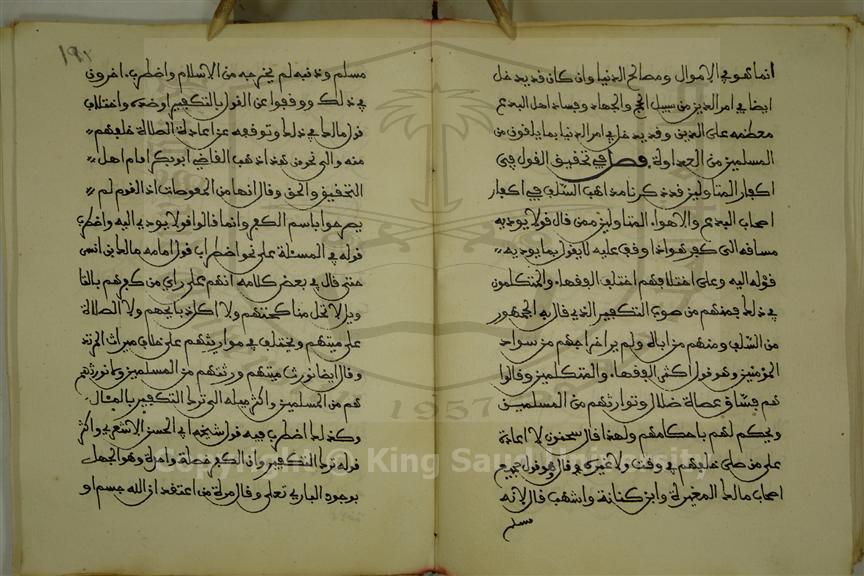 انما هو في الاموال ومصالح الدنيا وان كان قد يدخل
ايضا في امر الدين من سبيل الحج والجهاد وفساد اهل البدع
معظمه على الدين وقد يدخل في امر الدنيا بما يلقون من
المسلمين من العداوة. فصل في تحقيق القول في
اكفار المتاولين قد ذكرنا مذاهب السلف في اكفار
اصحاب البدع والاهواء المتاولين ممن قال قولا يوديه
مساقه الى كفر هو اذا وقف عليه لا يقول بما يوديه
قوله اليه وعلى اختلافهم اختلف الفقهاء والمتكلمون
في ذلك فمنهم من صوب التكفير الذي قال به الجمهور
من السلف ومنهم من اباه ولم ير اخراجهم من سواد
المؤمنين وهو قول اكثر الفقهاء والمتكلمين وقالوا
هم فساق عصاة ضلال ونوارثهم من المسلمين
ونحكم لهم باحكامهم ولهذا قال سحنون لا اعادة
على من صلى خلفهم في وقت ولا غيره قال وهو قول جميع
اصحاب مالك المغيرة وابن كنانة واشهب قال لانه
مسلم
١٩٢
مسلم وذنبه لم يخرجه من الاسلام واضطرب اخرون
في ذلك ووقفوا عن القول بالتكفير او ضده واختلاف
قول مالك في ذلك وتوقفه عن اعادة الصلاة خلفهم
منه والى نحو من هذا ذهب القاضي ابو بكر امام اهل
التحقيق والحق وقال انها من المعوصات اذ القوم لم
يصرحوا باسم الكفر وانما قالوا قولا يودي اليه واضطرب
قوله في المسئلة على نحو اضطراب قول امامه مالك بن انس
حتى قال في بعض كلامه انهم على راي من كفرهم بالتا
ويل لا تحل مناكحتهم ولا اكل ذبائحهم ولا الصلاة
على ميتهم ويختلف في مواريثهم على خلاف ميراث المرتد
وقال ايضا نورث ميتهم ورثتهم من المسلمين ولا نورثهم
هم من المسلمين واكثر ميله الى ترك التكفير بالمئال
وكذلك اضطرب فيه قول شيخه ابي الحسن الاشعري واكثر
قوله ترك التكفير وان الكفر خصلة واحدة وهو الجهل
بوجود الباري تعلى وقال مرة من اعتقد ان الله جسم او
1957
Copyright © King Saud University